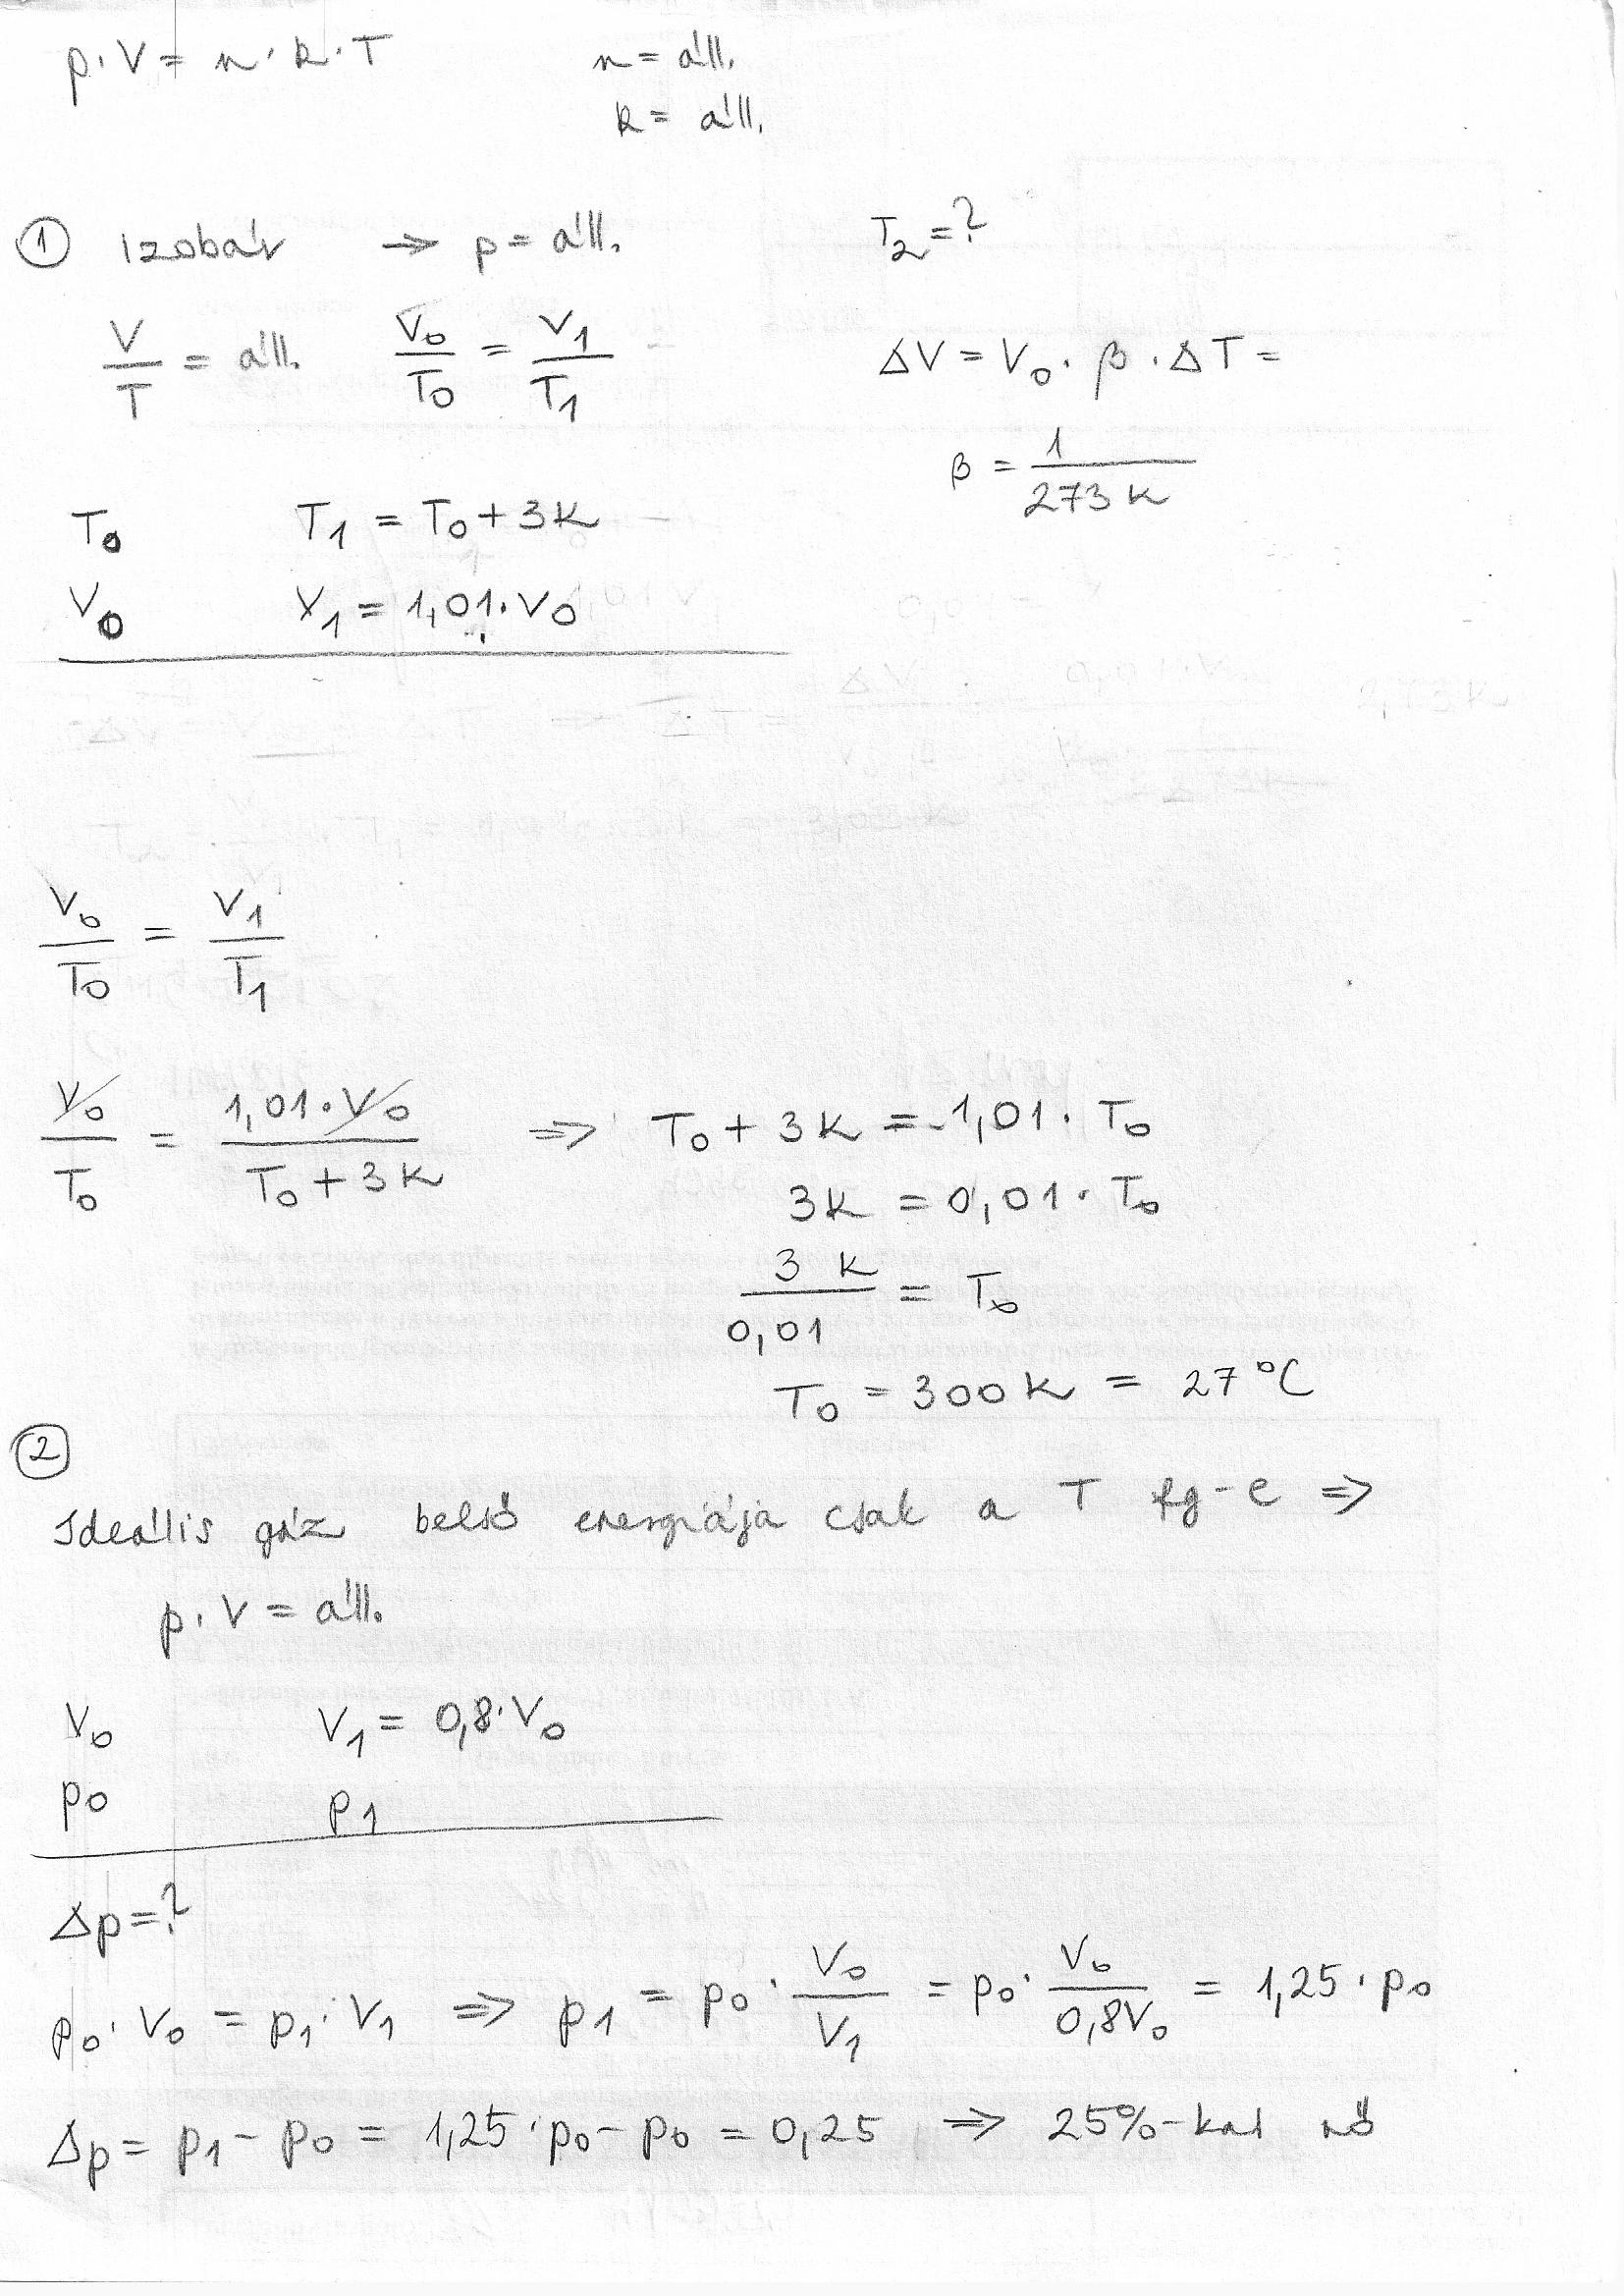 p·V = n·k·T n = áll.
k = áll.
① izobár → p = áll. T₂ = ?
V/T = áll. V₀/T₀ = V₁/T₁ ΔV = V₀·β·ΔT =
β = 1/273K
T₀ T₁ = T₀ + 3K
V₀ V₁ = 1,01·V₀
V₀/T₀ = V₁/T₁
V₀/T₀ = 1,01·V₀/(T₀ + 3K) ⇒ T₀ + 3K = 1,01·T₀
3K = 0,01·T₀
3K/0,01 = T₀
T₀ = 300K = 27°C
②
Ideális gáz belső energiája csak a T fg-e ⇒
p·V = áll.
V₀ V₁ = 0,8·V₀
p₀ p₁
Δp = ?
p₀·V₀ = p₁·V₁ ⇒ p₁ = p₀·V₀/V₁ = p₀·V₀/0,8V₀ = 1,25·p₀
Δp = p₁ - p₀ = 1,25·p₀ - p₀ = 0,25 ⇒ 25%-kal nő